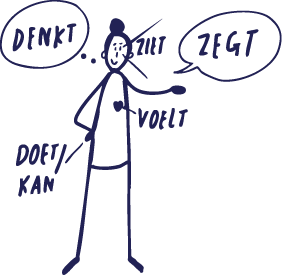 DENKT
ZIET
ZEGT
VOELT
DOET/
KAN